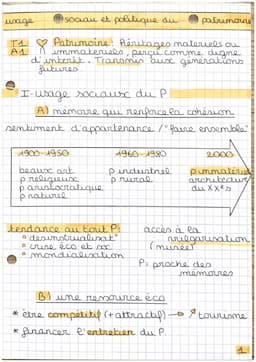 usage sociaux et politique du patrimoine
T1 ♡ Patrimoine: Héritages matériels ou
A1 immatériels, perçu comme digne
d'intérêt. Transmis aux générations
futures
I-usage sociaux du P
A) mémoire qui renforce la cohésion
sentiment d'appartenance / "faire ensemble"
1900-1950 1960-1980 2000
beaux art p industriel p immatériel
p religieux p rural architecture
p aristocratique du XXes
p naturel
tendance au tout P: accès à la
* désindustrialisat° vulgarisation
* crise éco et sx (musée)
* mondialisation P = proche des
mémoires
B) une ressource éco
* être compétitif (+ attractif) → ↗ tourisme
* financer l'entretien du P.
1